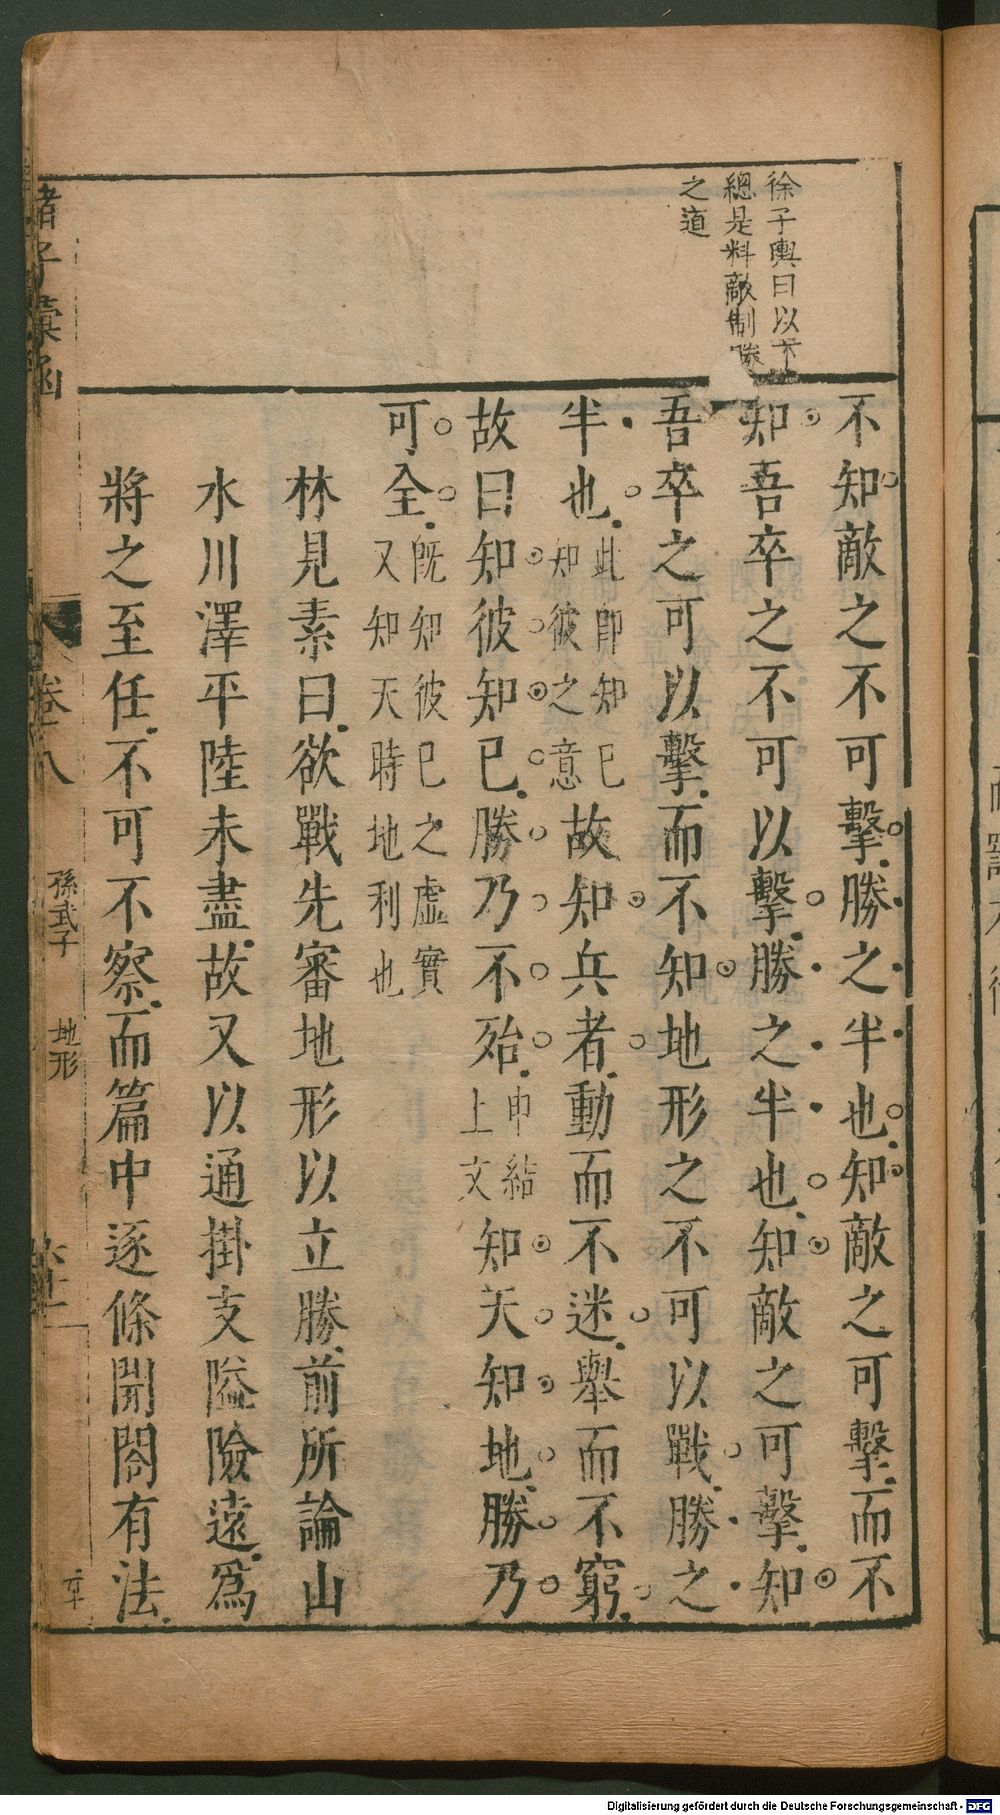 徐子輿曰以下
總是料敵制勝
之道
不知敵之不可擊勝之半也知敵之可擊而不
知吾卒之不可以擊勝之半也知敵之可擊知
吾卒之可以擊而不知地形之不可以戰勝之
半也此亦即知已知彼之意故知兵者動而不迷舉而不窮
故曰知彼知已勝乃不殆申結上文知天知地勝乃
可全既知彼已之虛實又知天時地利也
林見素曰欲戰先審地形以立勝前所論山
水川澤平陸未盡故又以通掛支隘險遠爲
將之至任不可不察而篇中逐條開闔有法
諸子彙函
卷八
孫武子
地形
六十一
Digitalisierung gefördert durch die Deutsche Forschungsgemeinschaft - DFG